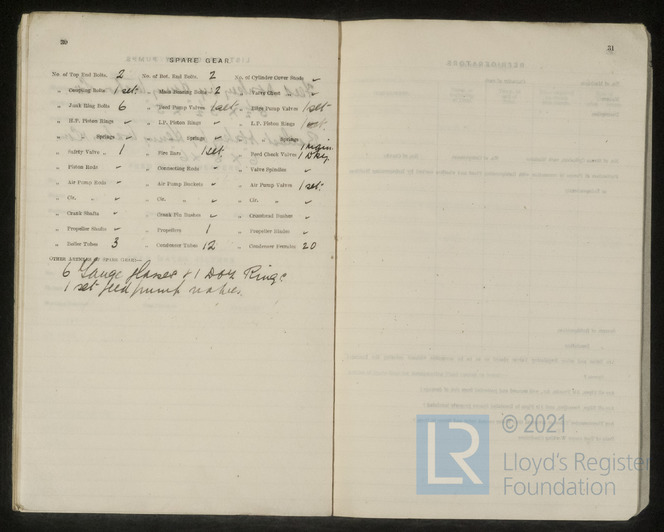 30
SPARE GEAR
No. of Top End Bolts. 2 No. of Bot. End Bolts. 2 No. of Cylinder Cover Studs -
„ Coupling Bolts 1 set „ Main Bearing Bolts 2 „ Valve Chest „ -
„ Junk Ring Bolts 6 „ Feed Pump Valves 1 set „ Bilge Pump Valves 1 set
„ H.P. Piston Rings - „ I.P. Piston Rings - „ L.P. Piston Rings 1 set
„ Springs - „ Springs - „ Springs -
„ Safety Valve „ 1 „ Fire Bars 1 set „ Feed Check Valves 1 Main 1 Dky
„ Piston Rods - „ Connecting Rods - „ Valve Spindles -
„ Air Pump Rods - „ Air Pump Buckets - „ Air Pump Valves 1 set
„ Cir. „ - „ Cir. „ - „ Cir. „ -
„ Crank Shafts - „ Crank Pin Bushes - „ Crosshead Bushes -
„ Propeller Shafts - „ Propellers 1 „ Propeller Blades -
„ Boiler Tubes 3 „ Condenser Tubes 12 „ Condenser Ferrules 20
OTHER ARTICLES OF SPARE GEAR:—
6 Gauge Glasses & 1 Doz Rings
1 set feed pump valves
31
© 2021
LR
Lloyd's Register
Foundation